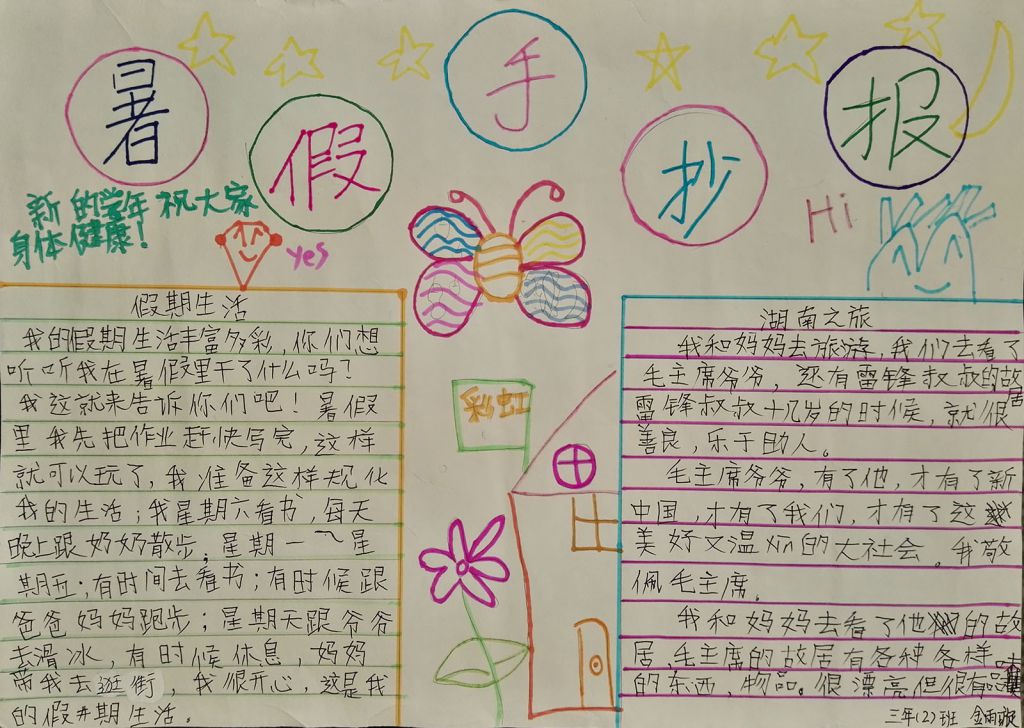 暑假手抄报
新的学年祝大家
身体健康！
yes
Hi
假期生活
我的假期生活丰富多彩，你们想
听听我在暑假里干了什么吗？
我这就来告诉你们吧！暑假
里我先把作业赶快写完，这样
就可以玩了，我准备这样规化
我的生活；我星期六看书，每天
晚上跟奶奶散步；星期一～星
期五；有时间去看书；有时候跟
爸爸妈妈跑步；星期天跟爷爷
去滑冰，有时候休息，妈妈
带我去逛街，我很开心，这是我
的假期生活。
彩虹
湖南之旅
我和妈妈去旅游，我们去看了
毛主席爷爷，还有雷锋叔叔的故居
雷锋叔叔十几岁的时候，就很
善良，乐于助人。
毛主席爷爷，有了他，才有了新
中国，才有了我们，才有了这
美好又温xin的大社会。我敬
佩毛主席。
我和妈妈去看了他的故
居，毛主席的故居有各种各样
的东西，物品。很漂亮但很有品味
三年(2)班